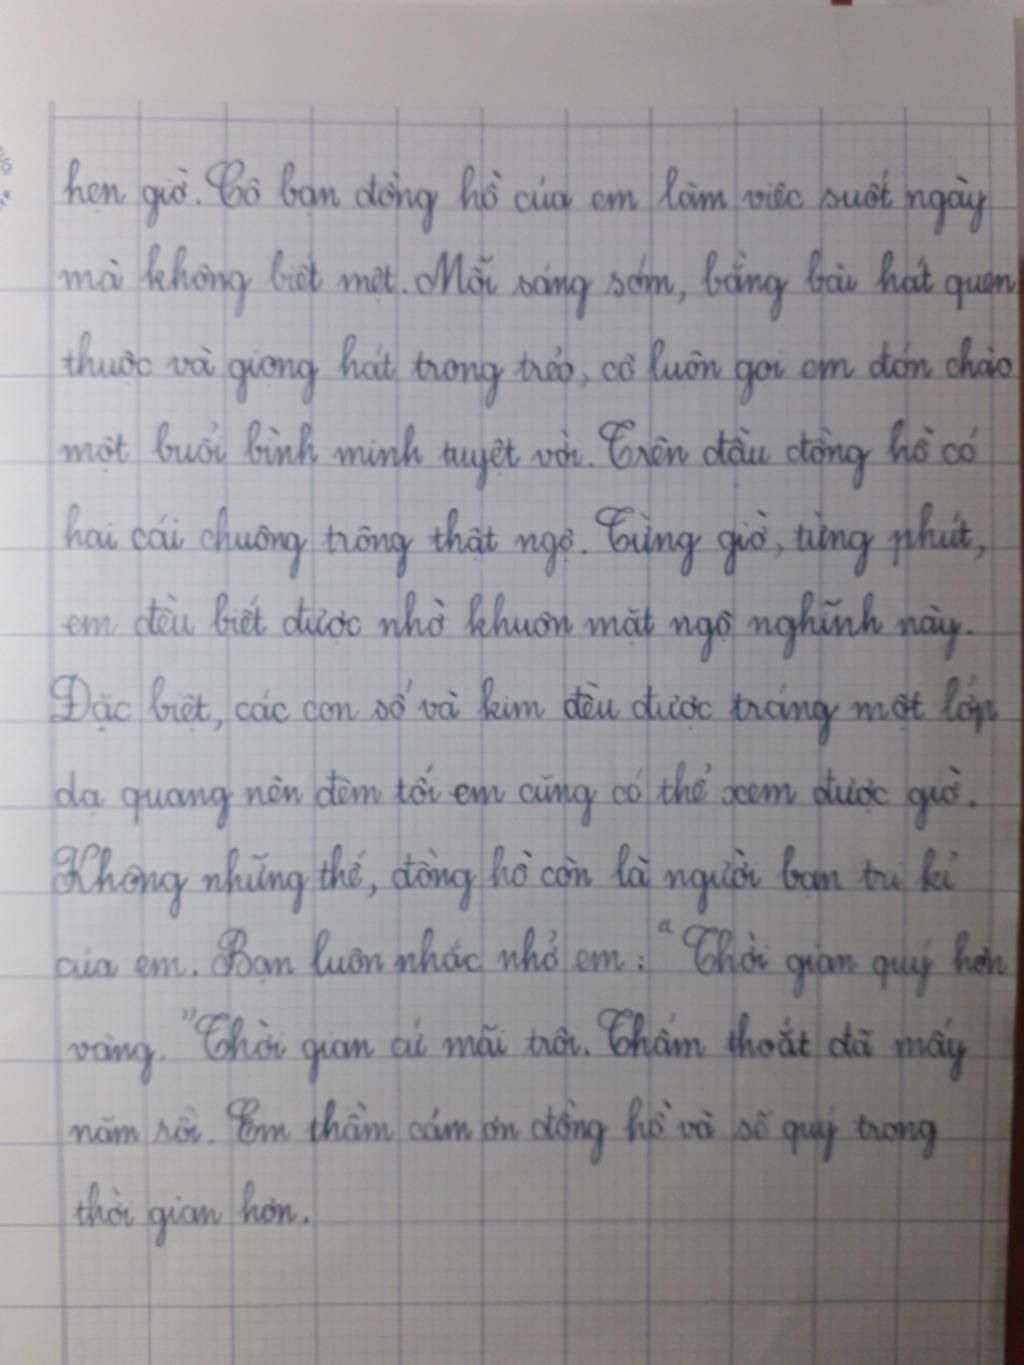 hẹn giờ. Cô bạn đồng hồ của em làm việc suốt ngày
mà không biết mệt. Mỗi sáng sớm, bằng bài hát quen
thuộc và giọng hát trong trẻo, cô luôn gọi em đón chào
một buổi bình minh tuyệt vời. Trên đầu đồng hồ có
hai cái chuông trông thật ngộ. Từng giờ, từng phút,
em đều biết được nhờ khuôn mặt ngộ nghĩnh này.
Đặc biệt, các con số và kim đều được tráng một lớp
dạ quang nên đêm tối em cũng có thể xem được giờ.
Không những thế, đồng hồ còn là người bạn tri kỉ
của em. Bạn luôn nhắc nhở em: "Thời gian quý hơn
vàng." Thời gian cứ mãi trôi. Thấm thoắt đã mấy
năm rồi. Em thầm cám ơn đồng hồ và sẽ quý trọng
thời gian hơn.